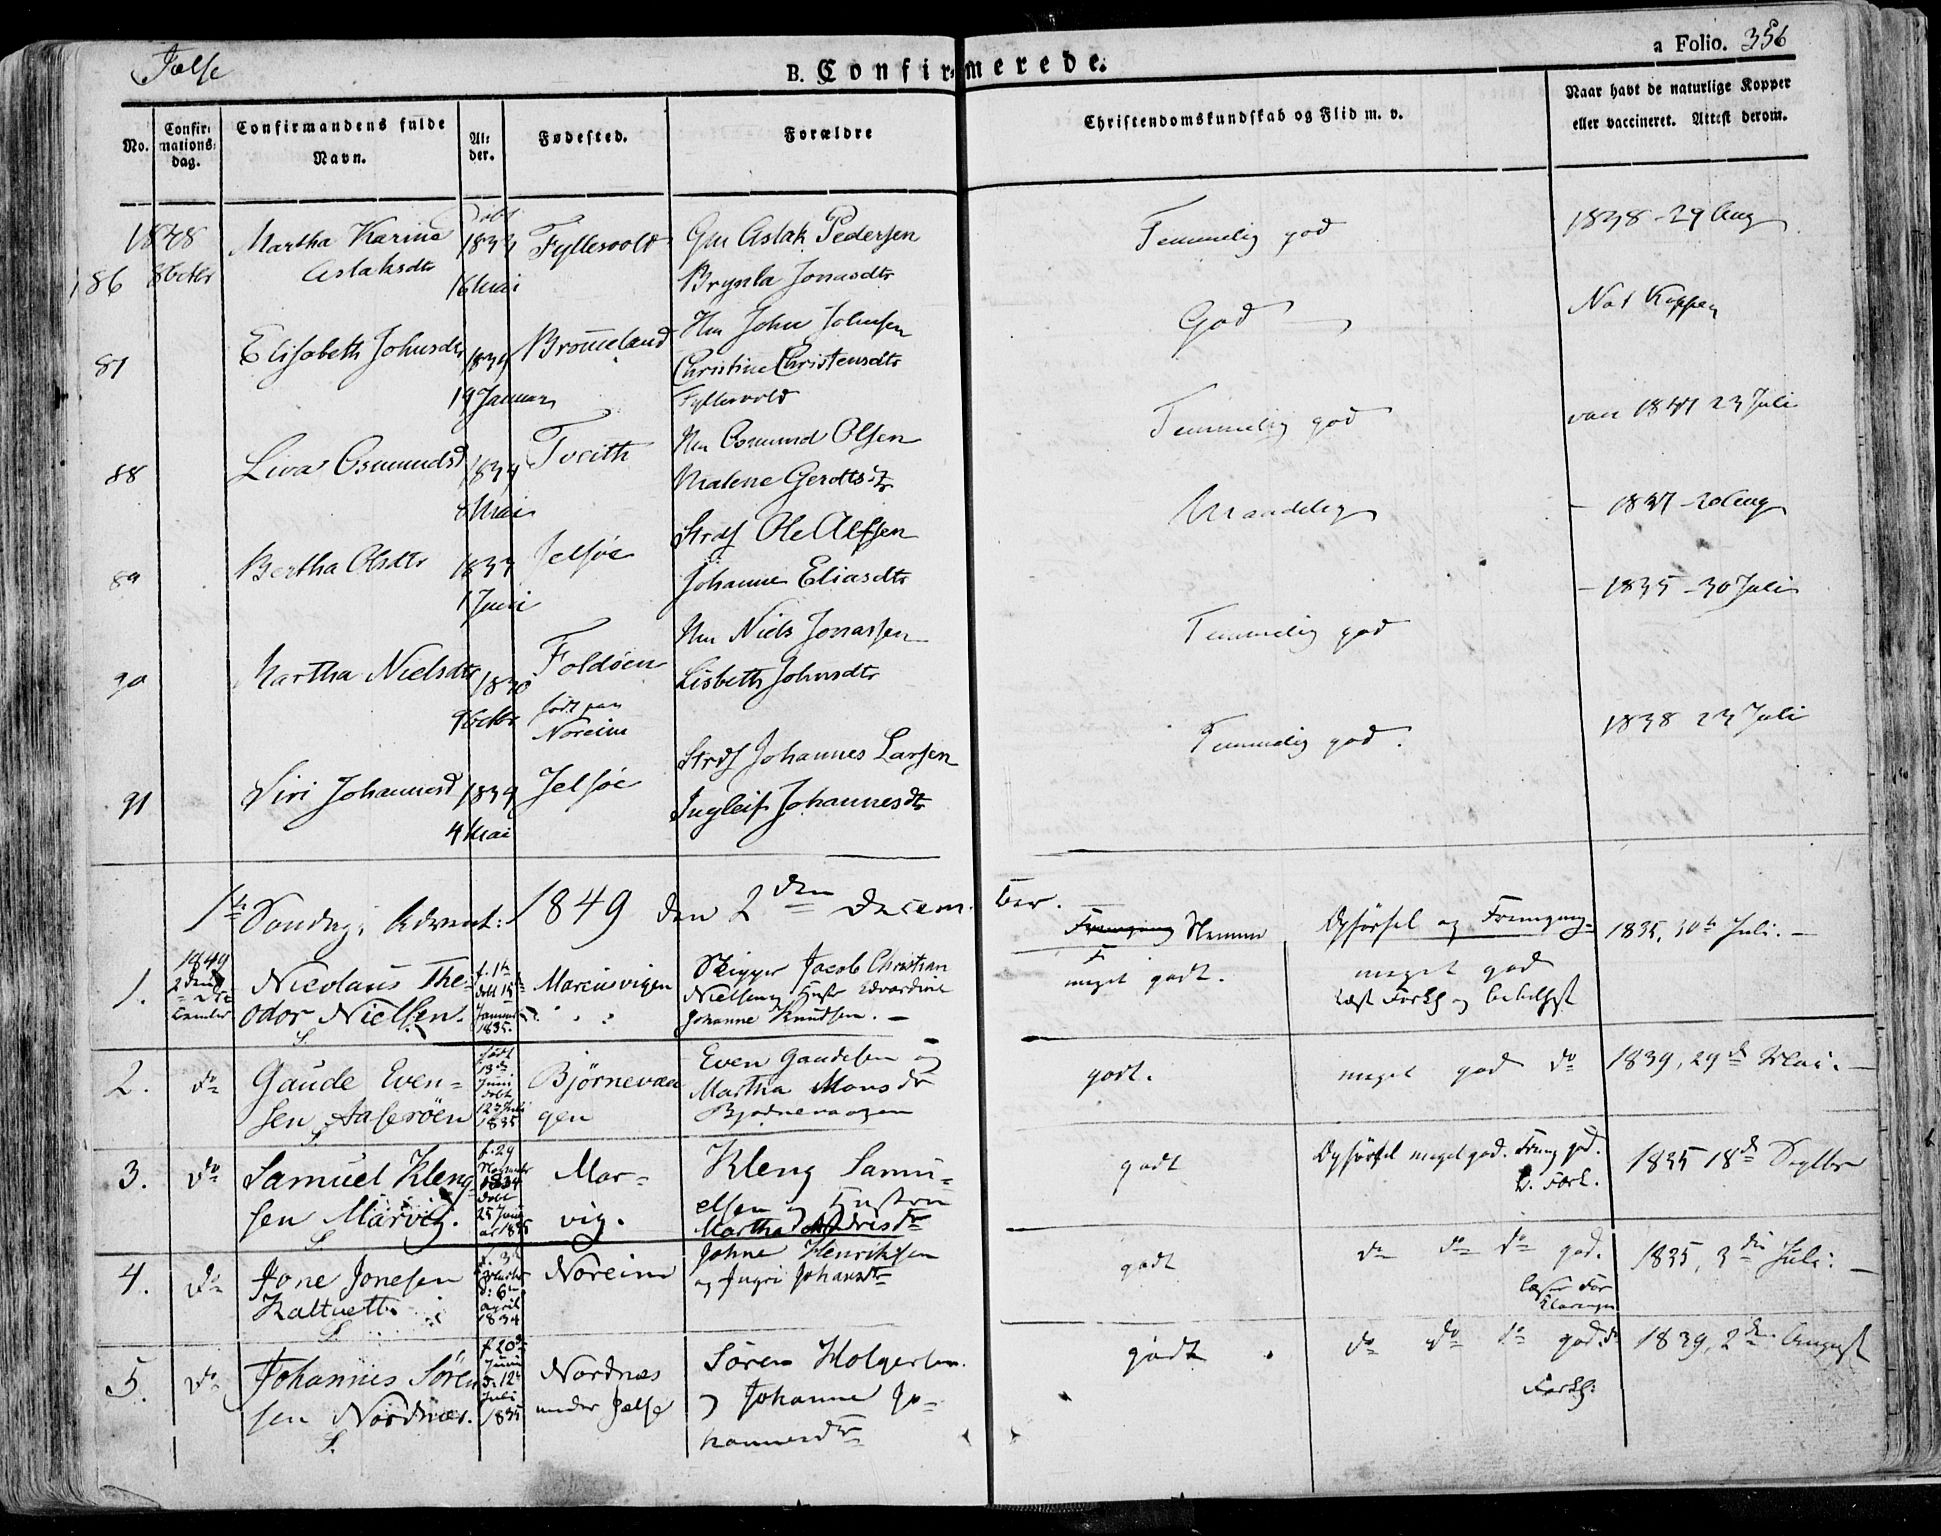 Jælse
B. Confirmerede.
a Folio. 356
No.
Confirmations-dag.
Confirmandens fulde Navn.
Alder.
Fødested.
Forældre
Christendomskundskab og Flid m. v.
Naar havt de naturlige Kopper
eller vaccineret. Attest derom.
1848
186 8 Octbr Martha Karine
Aslaksdtr
1833
16 Mai
Fyllesvold
Gm Aslak Pedersen
Brynla Jonasdtr
Temmelig god
1838 - 29 Aug
87 Elisabeth Johnsdtr
1834
19 Januar
Brommeland
Hm John Johnsen
Christine Christensdtr
Fyllesvold
God
Nat Kopper
88 Liva Osmundsd
1834
8 Mai
Tveith
Hm Osmund Olsen
Malene Gerdtsdtr
Temmelig god
vac 1841 23 Juli
89 Bertha Olsdtr
1833
1 Juni
Jelsøe
Strds Ole Olsen
Johanne Eliasdtr
Maadelig
- 1837 - 20 Aug
90 Martha Nielsdtr
9 Octbr
Foldøen
født paa
Noreim
Hm Niels Jonassen
Lisbeth Johnsdtr
Temmelig god
- 1835 - 30 Juli
91 Siri Johannesd
1834
4 Mai
Jelsøe
Strds Johannes Larsen
Ingleif Johannesdtr
Temmelig god.
1838 23 Juli
1te Søndag i Advent: 1849 den 2den December.
1. 1849
2den December
Nicolaus Theodor Nielsen.
S.
Januar
1835.
Marcusvigen
Skipper Jacob Christian
Nielsen og Hustr Edvardine
Johanne Knudsen. -
Fremgang Nemme
meget godt.
Opførsel og Fremgang
meget god
læst Forkl og bibelhist
1835, 30te Juli. -
2. do Gaude Evensen Aaserøen
S
født
13de
Juni
døbt
12te Juli
1835
Bjørnevaagen
Even Gaudesen og
Martha Monsdr
Bjørnevaagen
godt.
meget god do
1839, 29de Mai. -
3. do Samuel Klengsen Marvig.
S.
f. 29
November
1834
døbt
25 Januar 1835
Marvig.
Kleng Samuelsen og Hustru
Martha Andrisdr
godt
Opførsel meget god. Frmg gd.
l. Forkl.
1835 18de Septbr
4. do Jone Jonesen
Kaltvett.
S.
6te
April
1834
Noreim
Johne Henriksen
og Ingri Johansdtr
godt
do do do god.
læser Forklaringen
1835, 3die Juli. -
5. do Johannes Sørensen Nordnæs.
S.
f. 20de
Juni
D. 12te
Juli
1835
Nordnæs
under Jælse
Søren Holgersen
og Johanne Johannesdtr
godt.
do do do god do
Forkl:
1839, 2den August